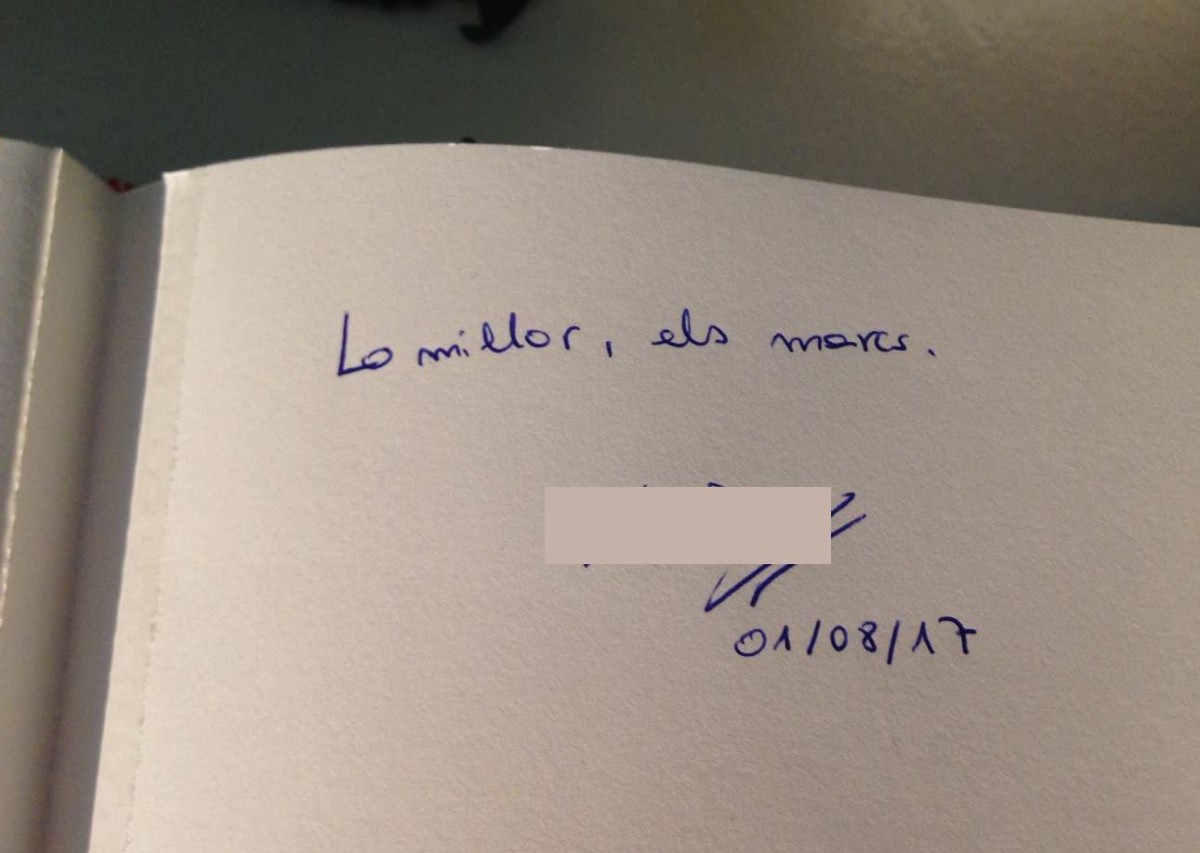 Lo millor, els marcs.
01/08/17